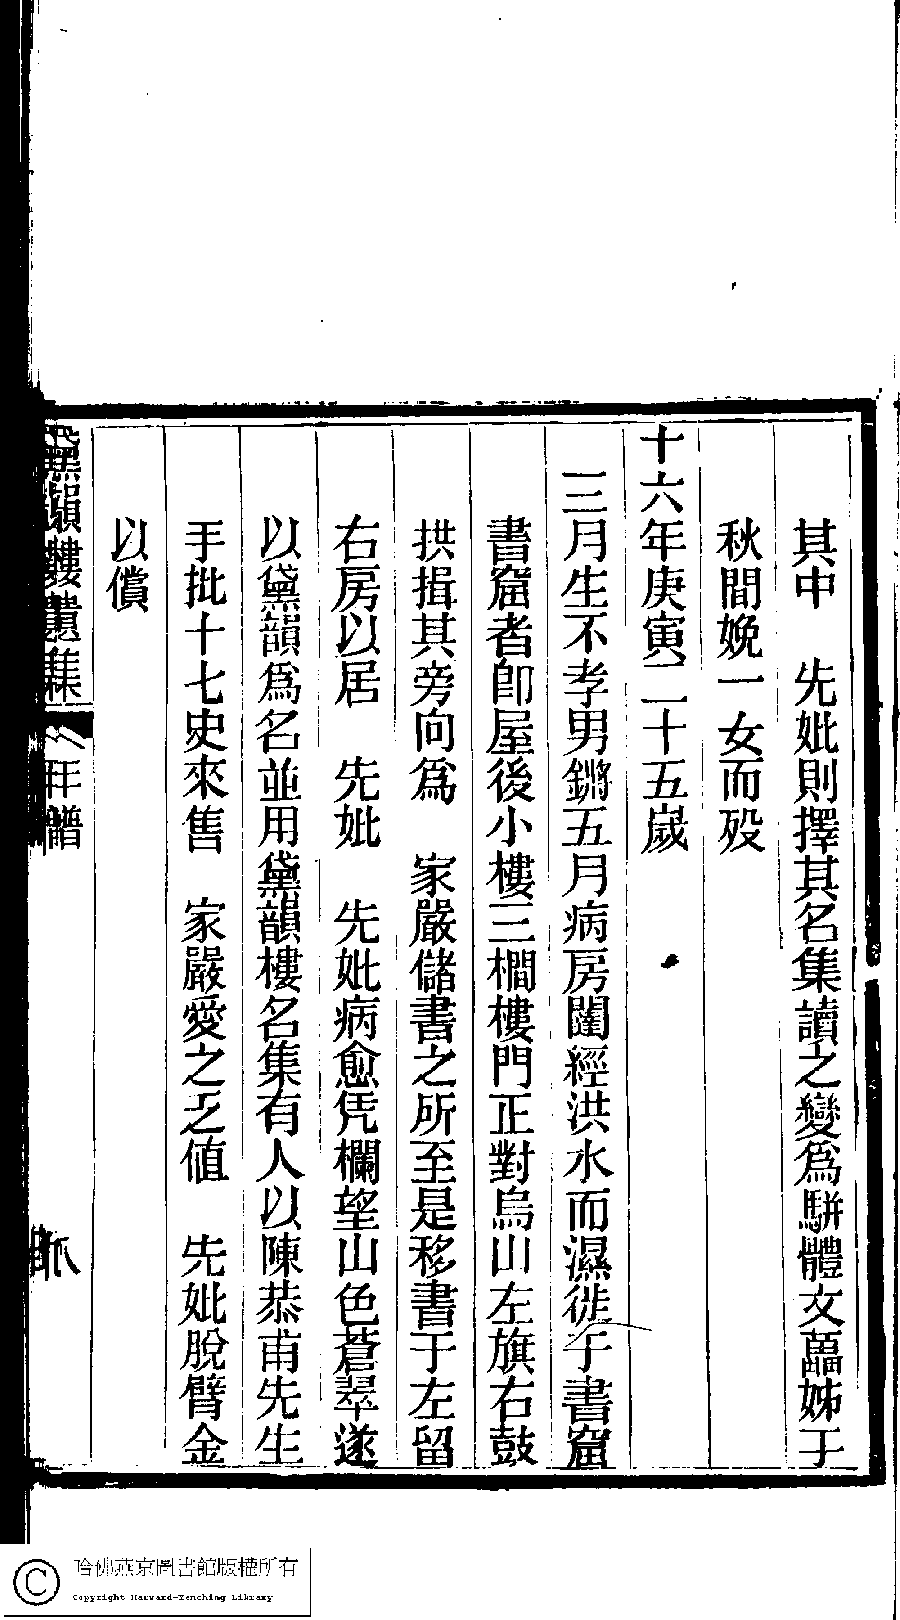 其中　先妣則擇其名集讀之變爲駢體文蘦姊于
秋間娩一女而歿
十六年庚寅二十五歲
三月生不孝男鏘五月病房闈經洪水而濕徙于書窟
書窟者卽屋後小樓三橺樓門正對烏山左旗右鼓
拱揖其旁向爲　家嚴儲書之所至是移書于左留
右房以居　先妣　先妣病愈凭欄望山色蒼翠遂
以黛韻爲名並用黛韻樓名集有人以陳恭甫先生
手批十七史來售　家嚴愛之乏値　先妣脫臂金
以償
黛韻樓遺集
年譜
哈佛燕京圖書館版權所有
Copyright Harvard-Yenching Library